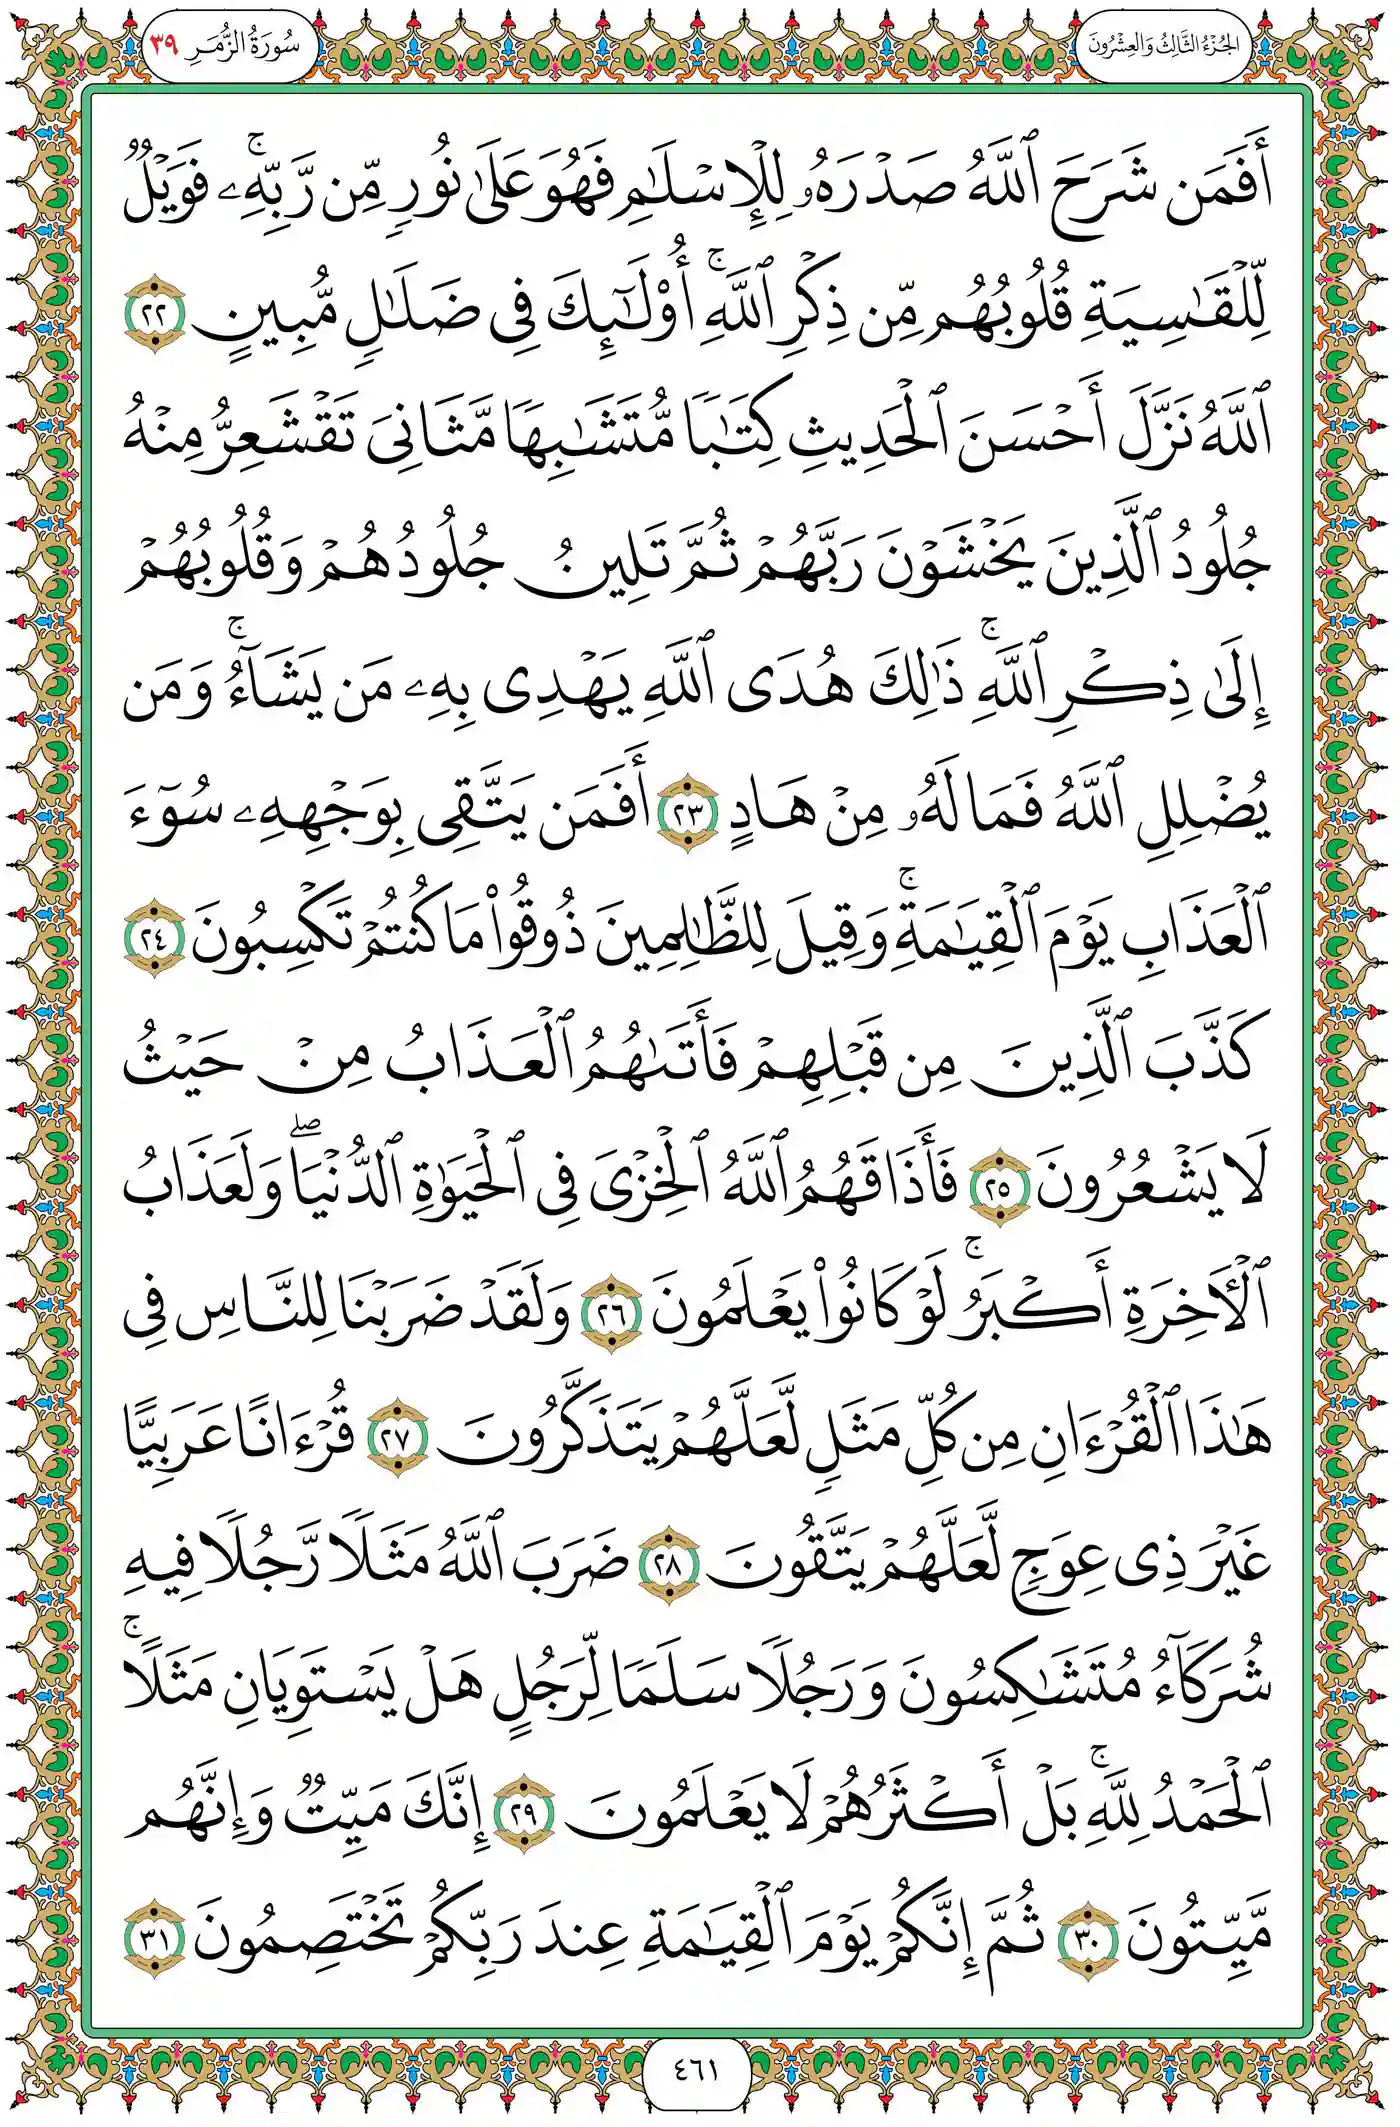 الجُزْءُ الثَّالِثُ وَالعِشْرُونَ
سُورَةُ الزُّمَرِ ٣٩
أَفَمَن شَرَحَ ٱللَّهُ صَدْرَهُۥ لِلْإِسْلَـٰمِ فَهُوَ عَلَىٰ نُورٍ مِّن رَّبِّهِۦۚ فَوَيْلٌ
لِّلْقَـٰسِيَةِ قُلُوبُهُم مِّن ذِكْرِ ٱللَّهِۚ أُو۟لَـٰٓئِكَ فِى ضَلَـٰلٍ مُّبِينٍ ٢٢
ٱللَّهُ نَزَّلَ أَحْسَنَ ٱلْحَدِيثِ كِتَـٰبًا مُّتَشَـٰبِهًا مَّثَانِىَ تَقْشَعِرُّ مِنْهُ
جُلُودُ ٱلَّذِينَ يَخْشَوْنَ رَبَّهُمْ ثُمَّ تَلِينُ جُلُودُهُمْ وَقُلُوبُهُمْ
إِلَىٰ ذِكْرِ ٱللَّهِۚ ذَٰلِكَ هُدَى ٱللَّهِ يَهْدِى بِهِۦ مَن يَشَآءُۚ وَمَن
يُضْلِلِ ٱللَّهُ فَمَا لَهُۥ مِنْ هَادٍ ٢٣ أَفَمَن يَتَّقِى بِوَجْهِهِۦ سُوٓءَ
ٱلْعَذَابِ يَوْمَ ٱلْقِيَـٰمَةِۚ وَقِيلَ لِلظَّـٰلِمِينَ ذُوقُوا۟ مَا كُنتُمْ تَكْسِبُونَ ٢٤
كَذَّبَ ٱلَّذِينَ مِن قَبْلِهِمْ فَأَتَىٰهُمُ ٱلْعَذَابُ مِنْ حَيْثُ
لَا يَشْعُرُونَ ٢٥ فَأَذَاقَهُمُ ٱللَّهُ ٱلْخِزْىَ فِى ٱلْحَيَوٰةِ ٱلدُّنْيَاۖ وَلَعَذَابُ
ٱلْـَٔاخِرَةِ أَكْبَرُۚ لَوْ كَانُوا۟ يَعْلَمُونَ ٢٦ وَلَقَدْ ضَرَبْنَا لِلنَّاسِ فِى
هَـٰذَا ٱلْقُرْءَانِ مِن كُلِّ مَثَلٍ لَّعَلَّهُمْ يَتَذَكَّرُونَ ٢٧ قُرْءَانًا عَرَبِيًّا
غَيْرَ ذِى عِوَجٍ لَّعَلَّهُمْ يَتَّقُونَ ٢٨ ضَرَبَ ٱللَّهُ مَثَلًا رَّجُلًا فِيهِ
شُرَكَآءُ مُتَشَـٰكِسُونَ وَرَجُلًا سَلَمًا لِّرَجُلٍ هَلْ يَسْتَوِيَانِ مَثَلًاۚ
ٱلْحَمْدُ لِلَّهِۚ بَلْ أَكْثَرُهُمْ لَا يَعْلَمُونَ ٢٩ إِنَّكَ مَيِّتٌ وَإِنَّهُم
مَّيِّتُونَ ٣٠ ثُمَّ إِنَّكُمْ يَوْمَ ٱلْقِيَـٰمَةِ عِندَ رَبِّكُمْ تَخْتَصِمُونَ ٣١
٤٦١